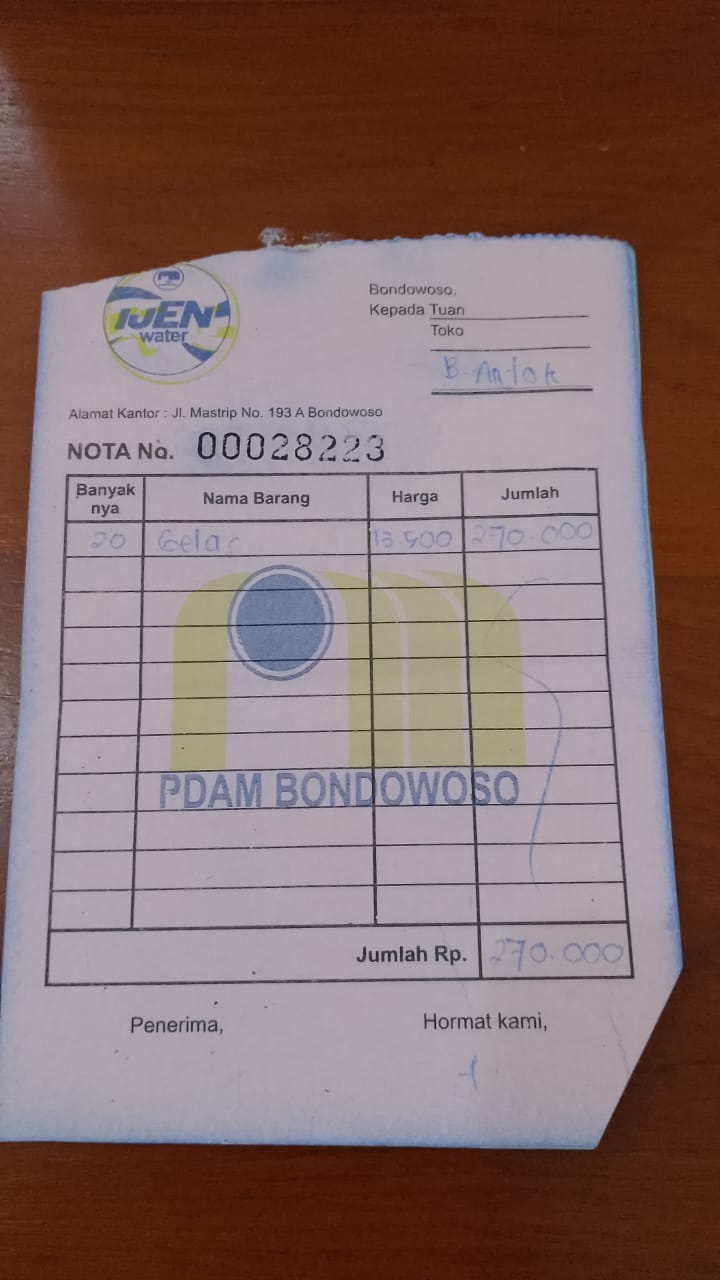 IJEN
water
Bondowoso,
Kepada Tuan
Toko
B. Antok
Alamat Kantor : Jl. Mastrip No. 193 A Bondowoso
NOTA No. 00028223
Banyak nya Nama Barang Harga Jumlah
20 Gelas 13.500 270.000
PDAM BONDOWOSO
Jumlah Rp. 270.000
Penerima, Hormat kami,